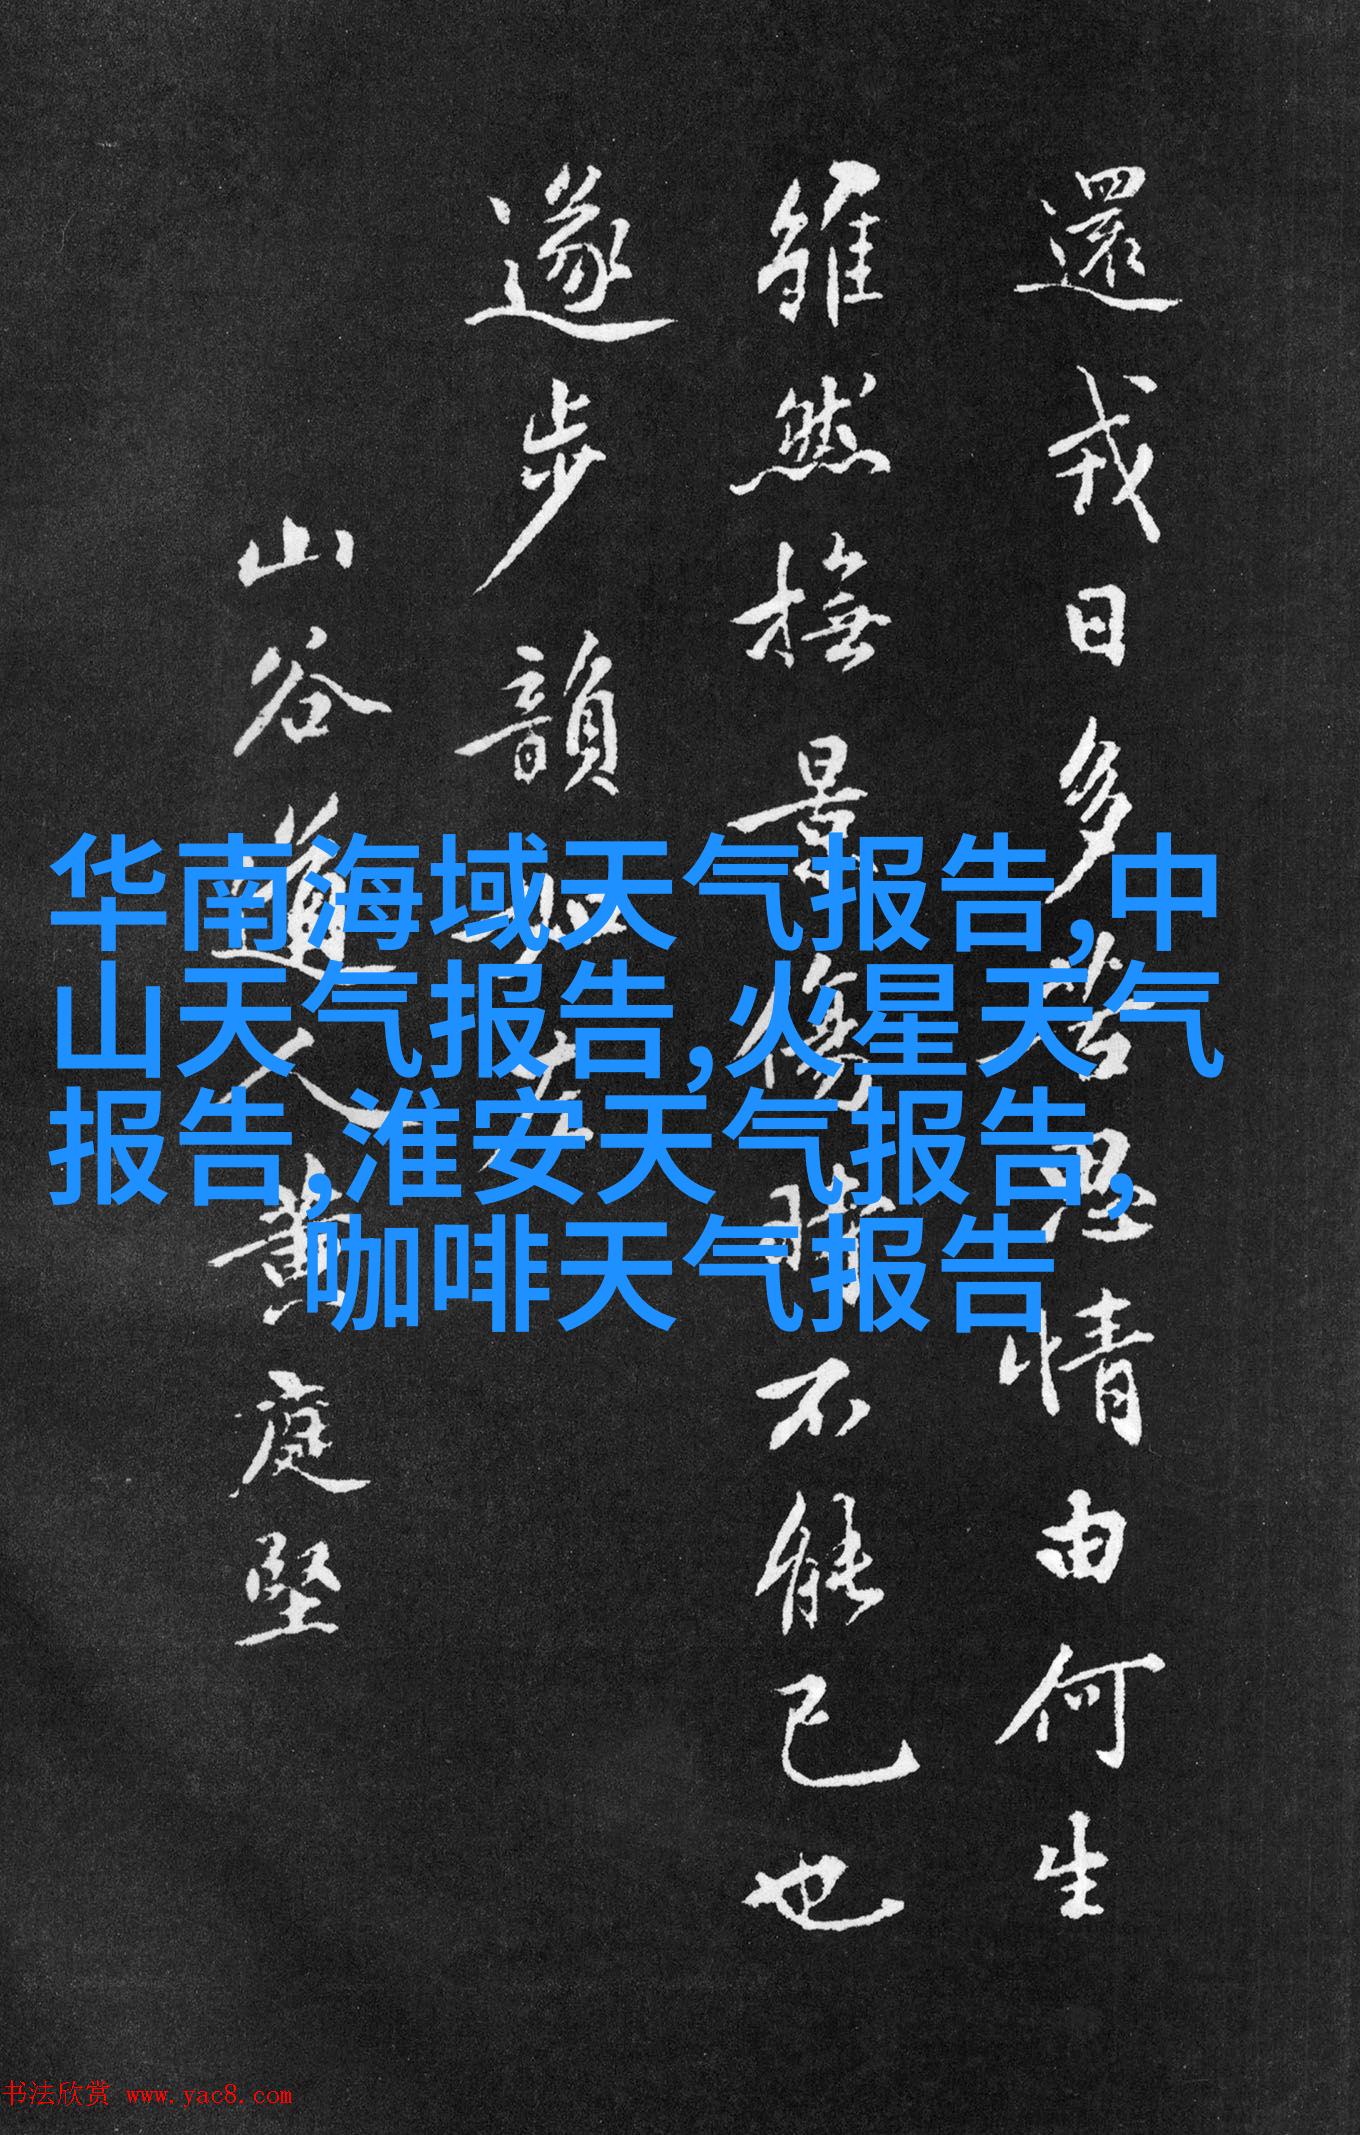 還戎日多苦思情由何生
雖然撫景傷不能已也
遂步韻如左
山谷道人黃庭堅
华南海域天气报告,中
山天气报告,火星天气
报告,淮安天气报告,
咖啡天气报告
书法欣赏 www.yac8.com